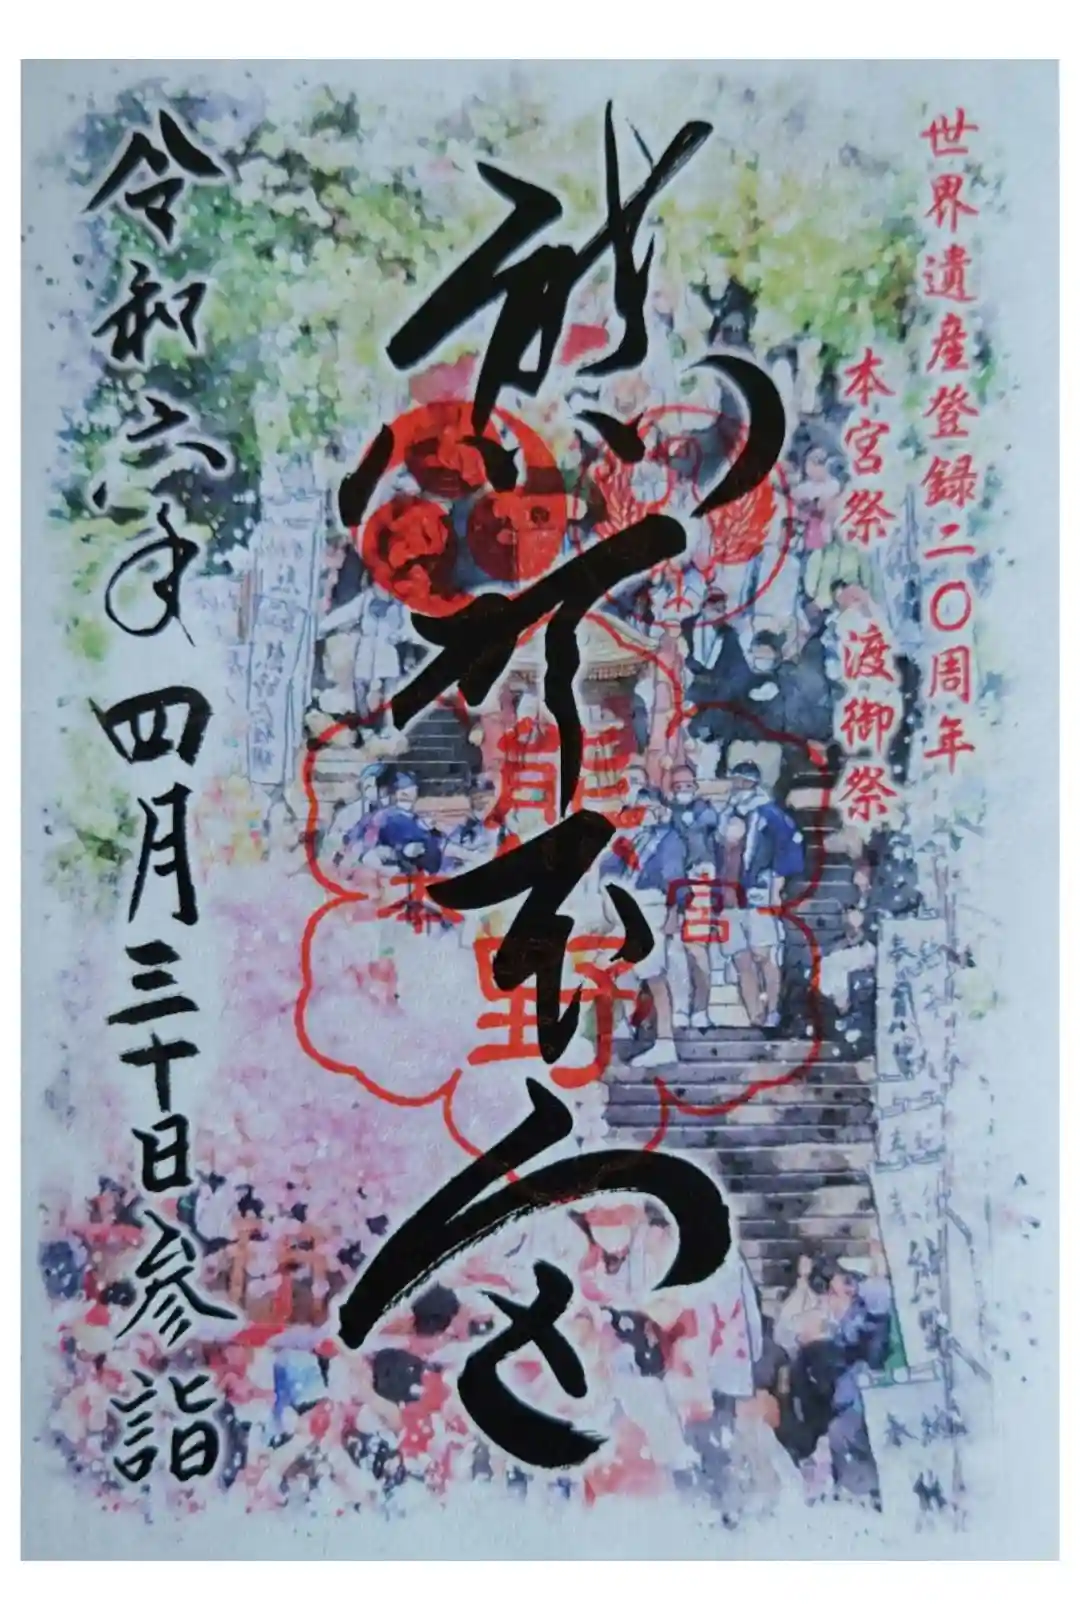 世界遺産登録二〇周年
本宮祭 渡御祭
熊野本宮
熊野
本宮
令和六年四月三十日参詣